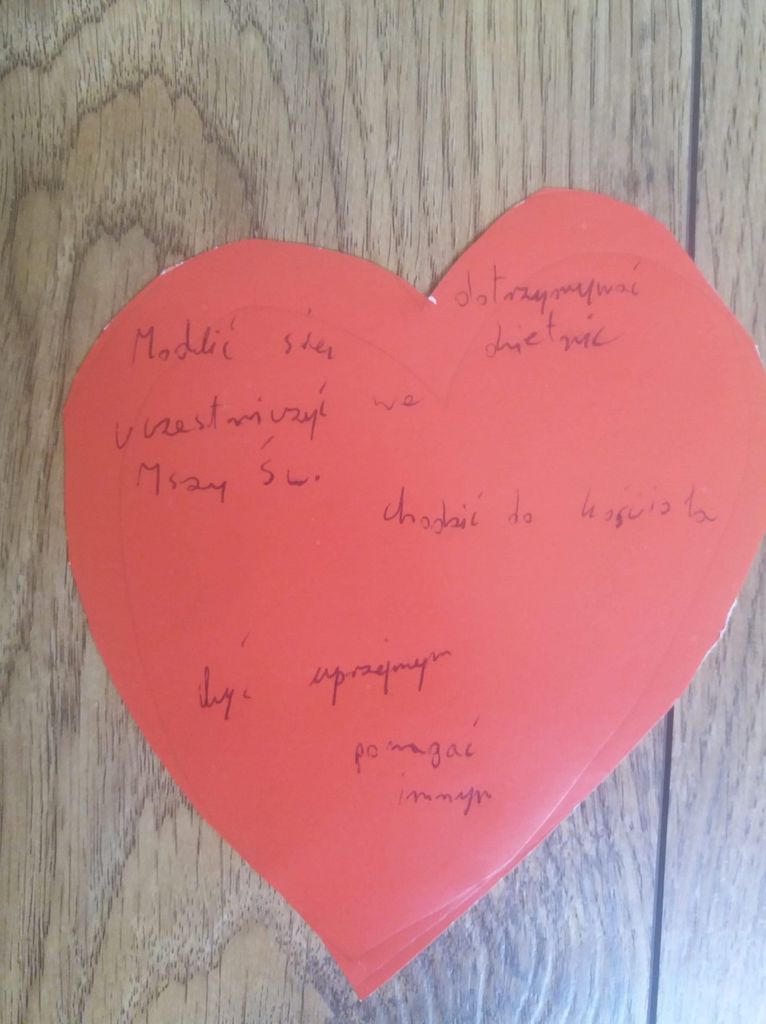 Modlić się
dotrzymywać
obietnic
uczestniczyć we
Mszy Św.
chodzić do kościoła
być uprzejmym
pomagać
innym